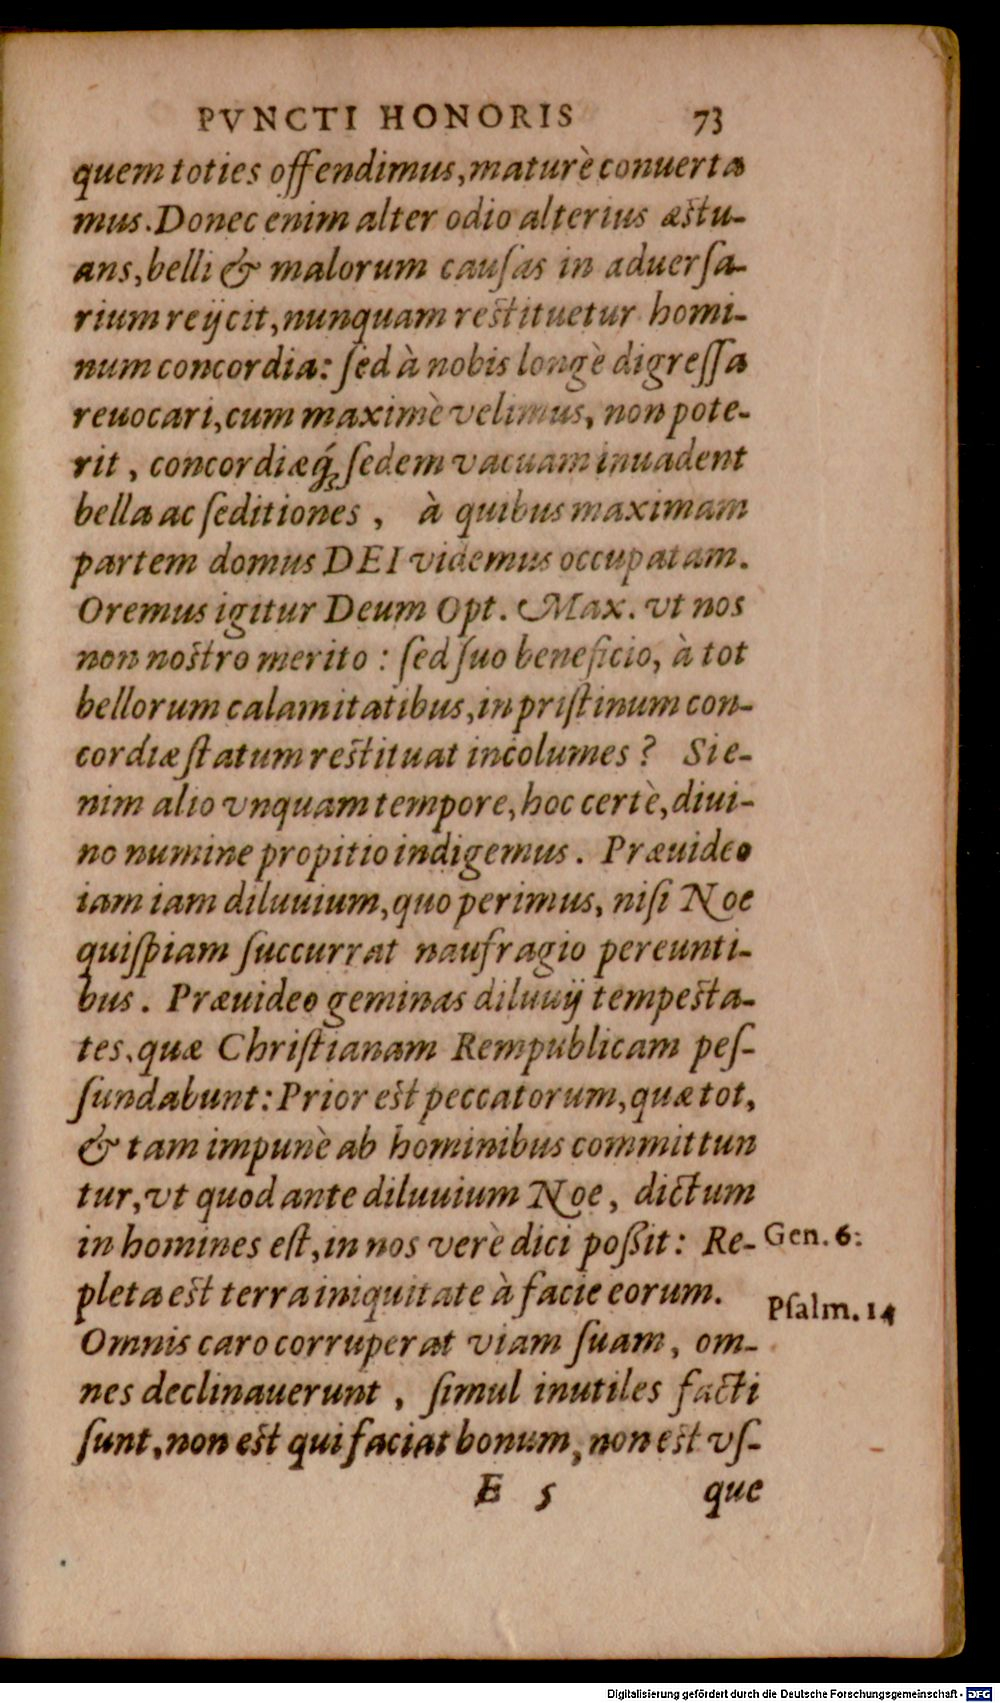 PVNCTI HONORIS 73
quem toties offendimus, maturè conuerta
mus. Donec enim alter odio alterius æstu-
ans, belli & malorum cauſas in aduerſa-
rium reijcit, nunquam restituetur homi-
num concordia: ſed à nobis longè digreſſa
reuocari, cum maximè velimus, non pote-
rit, concordiæq́; ſedem vacuam inuadent
bella ac ſeditiones, à quibus maximam
partem domus DEI videmus occupatam.
Oremus igitur Deum Opt. Max. vt nos
non nostro merito: ſed ſuo beneficio, à tot
bellorum calamitatibus, in priſtinum con-
cordiæ ſtatum restituat incolumes? Si e-
nim alio vnquam tempore, hoc certè, diui-
no numine propitio indigemus. Præuideo
iam iam diluuium, quo perimus, niſi Noe
quiſpiam ſuccurrat naufragio pereunti-
bus. Præuideo geminas diluuij tempesta-
tes, quæ Chriſtianam Rempublicam peſ-
ſundabunt: Prior est peccatorum, quæ tot,
& tam impunè ab hominibus committun
tur, vt quod ante diluuium Noe, dictum
in homines eſt, in nos verè dici poßit: Re-
Gen. 6:
pleta est terra iniquitate à facie eorum.
Psalm. 14
Omnis caro corruperat viam ſuam, om-
nes declinauerunt, ſimul inutiles facti
ſunt, non est qui faciat bonum, non est vſ-
E 5 que
Digitalisierung gefördert durch die Deutsche Forschungsgemeinschaft - DFG